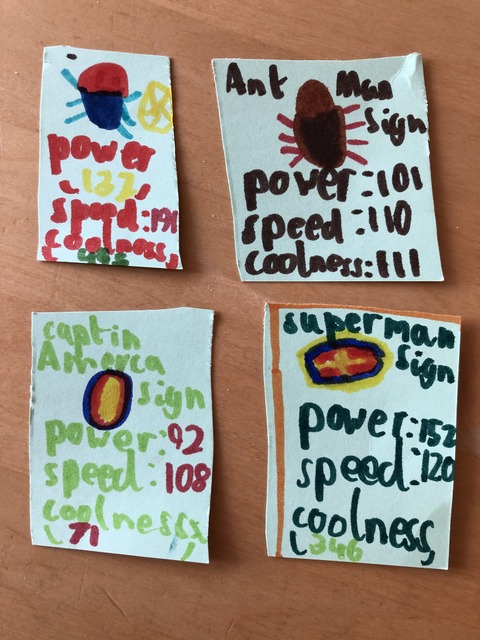 power
speed:191
coolness
Ant Man
sign
power:101
speed:110
coolness:111
captin
Amerca
sign
power:92
speed:108
coolness
71
superman
sign
power:152
speed:120
coolness
346